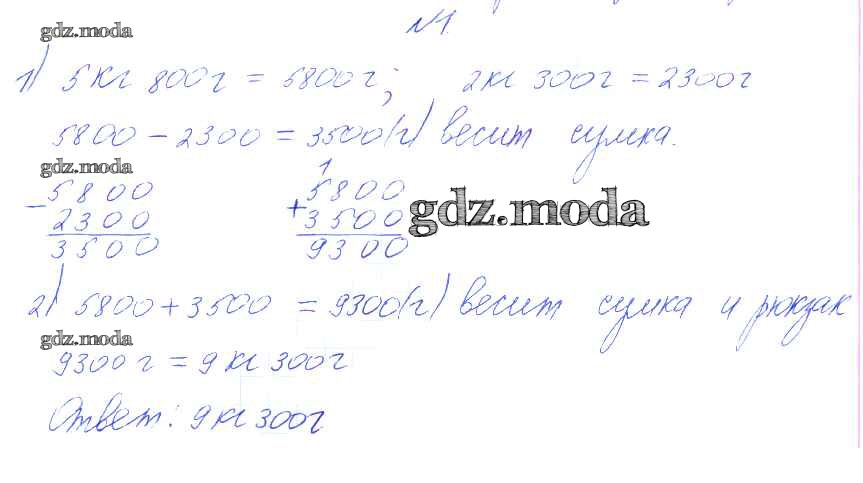 gdz.moda
№1.
1) 5 кг 800 г = 5800 г; 2 кг 300 г = 2300 г
5800 – 2300 = 3500 (г) весит сумка.
gdz.moda
1
– 5800 + 5800
2300 3500 gdz.moda
3500 9300
2) 5800 + 3500 = 9300 (г) весит сумка и рюкзак
gdz.moda
9300 г = 9 кг 300 г
Ответ: 9 кг 300 г